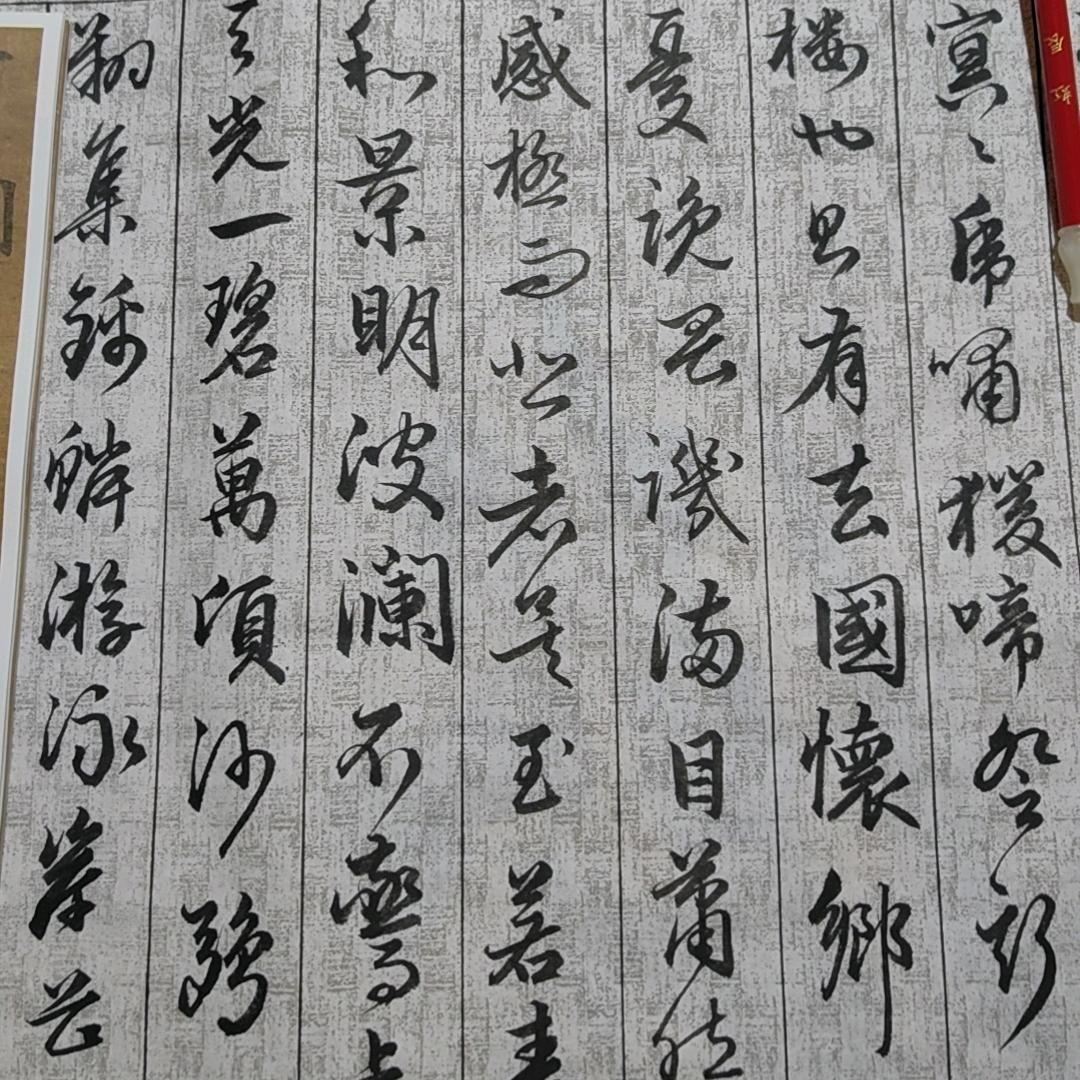 冥〻虎嘯猨啼登斯
楼也則有去國懷鄉
憂讒畏譏滿目蕭然
感極而悲者矣至若春
和景明波瀾不驚上
天光一碧萬頃沙鷗
翔集錦鱗游泳岸芷